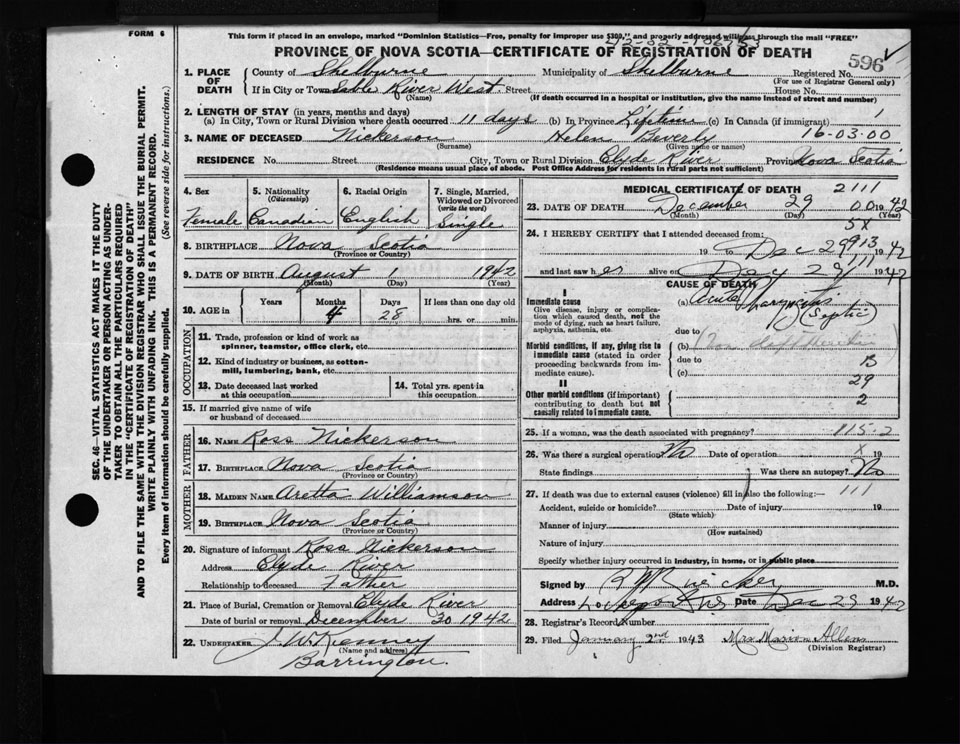 FORM 6
This form if placed in an envelope, marked "Dominion Statistics—Free, penalty for improper use $300," and properly addressed will pass through the mail "FREE"
PROVINCE OF NOVA SCOTIA—CERTIFICATE OF REGISTRATION OF DEATH
596
1. PLACE OF DEATH
County of Shelburne Municipality of Shelburne Registered No.
(For use of Registrar General only)
If in City or Town Sable River West Street House No.
(Name) (If death occurred in a hospital or institution, give the name instead of street and number)
2. LENGTH OF STAY (in years, months and days)
(a) In City, Town or Rural Division where death occurred 11 days (b) In Province Lifetime (c) In Canada (if immigrant) 1
3. NAME OF DECEASED Nickerson Helen Beverly 16-03-00
(Surname) (Given name or names)
RESIDENCE No. Street City, Town or Rural Division Clyde River Province Nova Scotia
(Residence means usual place of abode. Post Office Address for residents in rural parts not sufficient)
4. Sex Female
5. Nationality (Citizenship) Canadian
6. Racial Origin English
7. Single, Married, Widowed or Divorced (write the word) Single
8. BIRTHPLACE Nova Scotia
(Province or Country)
9. DATE OF BIRTH August 1 1942
(Month) (Day) (Year)
10. AGE in Years Months 4 Days 28 If less than one day old hrs. or min.
OCCUPATION
11. Trade, profession or kind of work as spinner, teamster, office clerk, etc.
12. Kind of industry or business, as cotton-mill, lumbering, bank, etc.
13. Date deceased last worked at this occupation
14. Total yrs. spent in this occupation
15. If married give name of wife or husband of deceased
FATHER
16. NAME Ross Nickerson
17. BIRTHPLACE Nova Scotia
(Province or Country)
MOTHER
18. MAIDEN NAME Aretta Williamson
19. BIRTHPLACE Nova Scotia
(Province or Country)
20. Signature of informant Ross Nickerson
Address Clyde River
Relationship to deceased Father
21. Place of Burial, Cremation or Removal Clyde River
Date of burial or removal December 30 1942
22. UNDERTAKER J. W. Kenney
(Name and address)
Barrington.
MEDICAL CERTIFICATE OF DEATH 2111
23. DATE OF DEATH December 29 1942
(Month) (Day) (Year)
24. I HEREBY CERTIFY that I attended deceased from:
19 to Dec 29 1942
and last saw her alive on Dec 29 1942
CAUSE OF DEATH
I
Immediate cause
Give disease, injury or complication which caused death, not the mode of dying, such as heart failure, asphyxia, asthenia, etc.
(a) Acute Pharyngitis (Septic)
due to
Morbid conditions, if any, giving rise to immediate cause (stated in order proceeding backwards from immediate cause).
(b)
due to B
(c)
29
II
Other morbid conditions (if important) contributing to death but not causally related to immediate cause.
2
25. If a woman, was the death associated with pregnancy? 115-2
26. Was there a surgical operation? No Date of operation x 19
State findings Was there an autopsy? No
27. If death was due to external causes (violence) fill in also the following:— 111
Accident, suicide or homicide? Date of injury 19
(State which)
Manner of injury
(How sustained)
Nature of injury
Specify whether injury occurred in industry, in home, or in public place
Signed by M.D.
Address Date Dec 29 1942
28. Registrar's Record Number
29. Filed January 2nd 1943 Mrs Marion Allen
(Division Registrar)
SEC. 46—VITAL STATISTICS ACT MAKES IT THE DUTY OF THE UNDERTAKER OR PERSON ACTING AS UNDERTAKER TO OBTAIN ALL THE PARTICULARS REQUIRED IN THE "CERTIFICATE OF REGISTRATION OF DEATH" AND TO FILE THE SAME WITH THE DIVISION REGISTRAR WHO SHALL ISSUE THE BURIAL PERMIT.
WRITE PLAINLY WITH UNFADING INK. THIS IS A PERMANENT RECORD.
Every item of information should be carefully supplied. (See reverse side for instructions.)